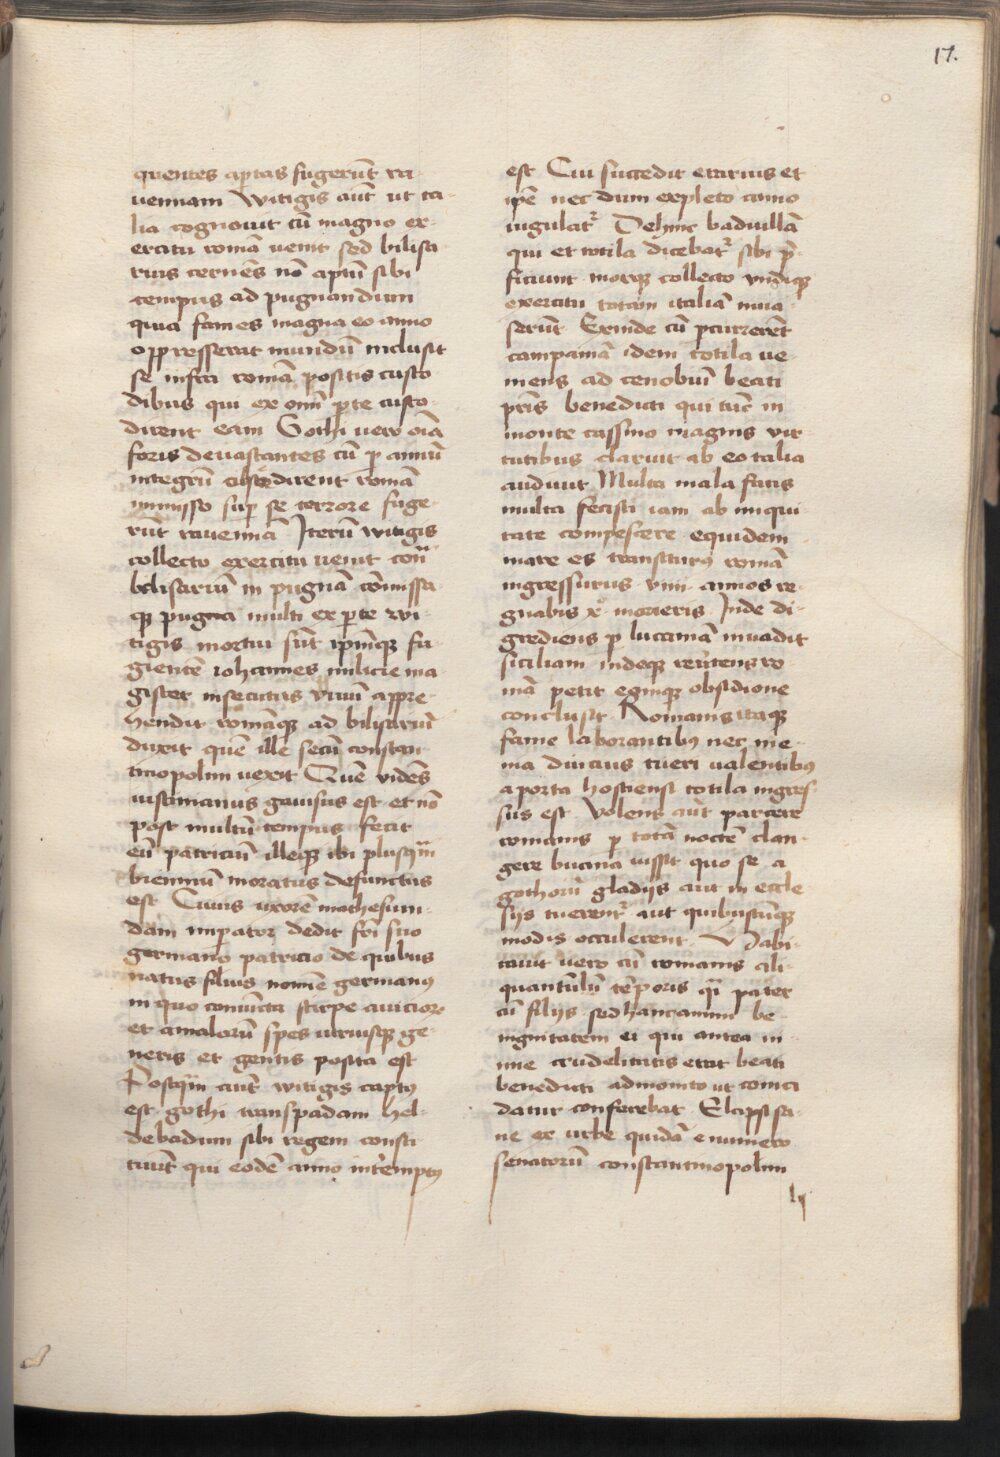 17.
quentes aptas fugerūt ra
uennam Witigis aūt ut ta
lia cognouit cū magno ex
ercitu romā uenit sed bilisa
rius cernēs nō aptū sibi
tempus ad pugnandum
quia fames magna eo anno
oppresserat mundū inclusit
se infra romā positis custo
dibus qui ex omī pte custo
dirent eam Gothi uero oīa
foris deuastantes cū p annū
integrū custodirent romā
inmisso sup se terrore fuge
rūt rauennā Iterū witigis
collecto exercitu uenit con̄
bilisariū in pugnā cōmissa
qꝫ pugna multi ex pte wi
tigis mortui sūt ipm̄qꝫ fu
gientē iohannes milicie ma
gister insecutus viuū appre
hendit romāqꝫ ad bilisariū
duxit quē ille secū constan
tinopolim uexit Quē vidēs
iustinianus gauisus est et nō
post multū tempus fecit
eū patriciū illeqꝫ ibi plusqm̄
biennium moratus defunctus
est Cuius uxorē mathesuin
dam imperator dedit fri suo
germano patricio de quibus
natus filius nomē germanus
in quo coniuncta stirpe auiciorꝫ
et amalorū spes utriusqꝫ ge
neris et gentis posita est
Postqm̄ aūt witigis captus
est gothi transpadam hel
debadum sibi regem consti
tuūt qui eodē anno int'emptus
est Cui succedit erarius et
ipē nec dum expleto anno
iugulat̄ Dehinc baduillā
qui et totila dicebat̄ sibi p̄
ficiunt moxqꝫ collecto vndiqꝫ
exercitu totam italiā inua
serūt Exinde cū pcurrerēt
campaniā idem totila ue
niens ad cenobiū beati
pris benedicti qui tūc in
monte cassino magnis vir
tutibus claruit ab eo talia
audiuit Multa mala facis
multa fecisti iam ab iniqui
tate compescere equidem
mare es transiturus romā
ingressurus viiii annos re
gnabis x° morieris Inde di
grediens p lucaniā inuadit
siciliam indeqꝫ reūtens ro
mā petit eamqꝫ obsidione
conclusit Romanis itaqꝫ
fame laborantibus nec me
nia diucius tueri ualentibus
a porta hostiensi totila ingres
sus est Volens aūt parcere
romanis p totā noctē clan
gere bucina iussit quo se a
gothorū gladijs aut in eccle
sijs tuerent̄ aut quibuscūqꝫ
modis occulerent Habi
tauit uero cū romanis ali
quantulū tēporis qsi pater
cū filijs sed hanc animi be
nignitatem ei qui antea ni
mie crudelitatis erat beati
benedicti admonito ut comci
datur conferebat Elapsi sa
ne ex urbe quidā e numero
senatorū constantinopolim